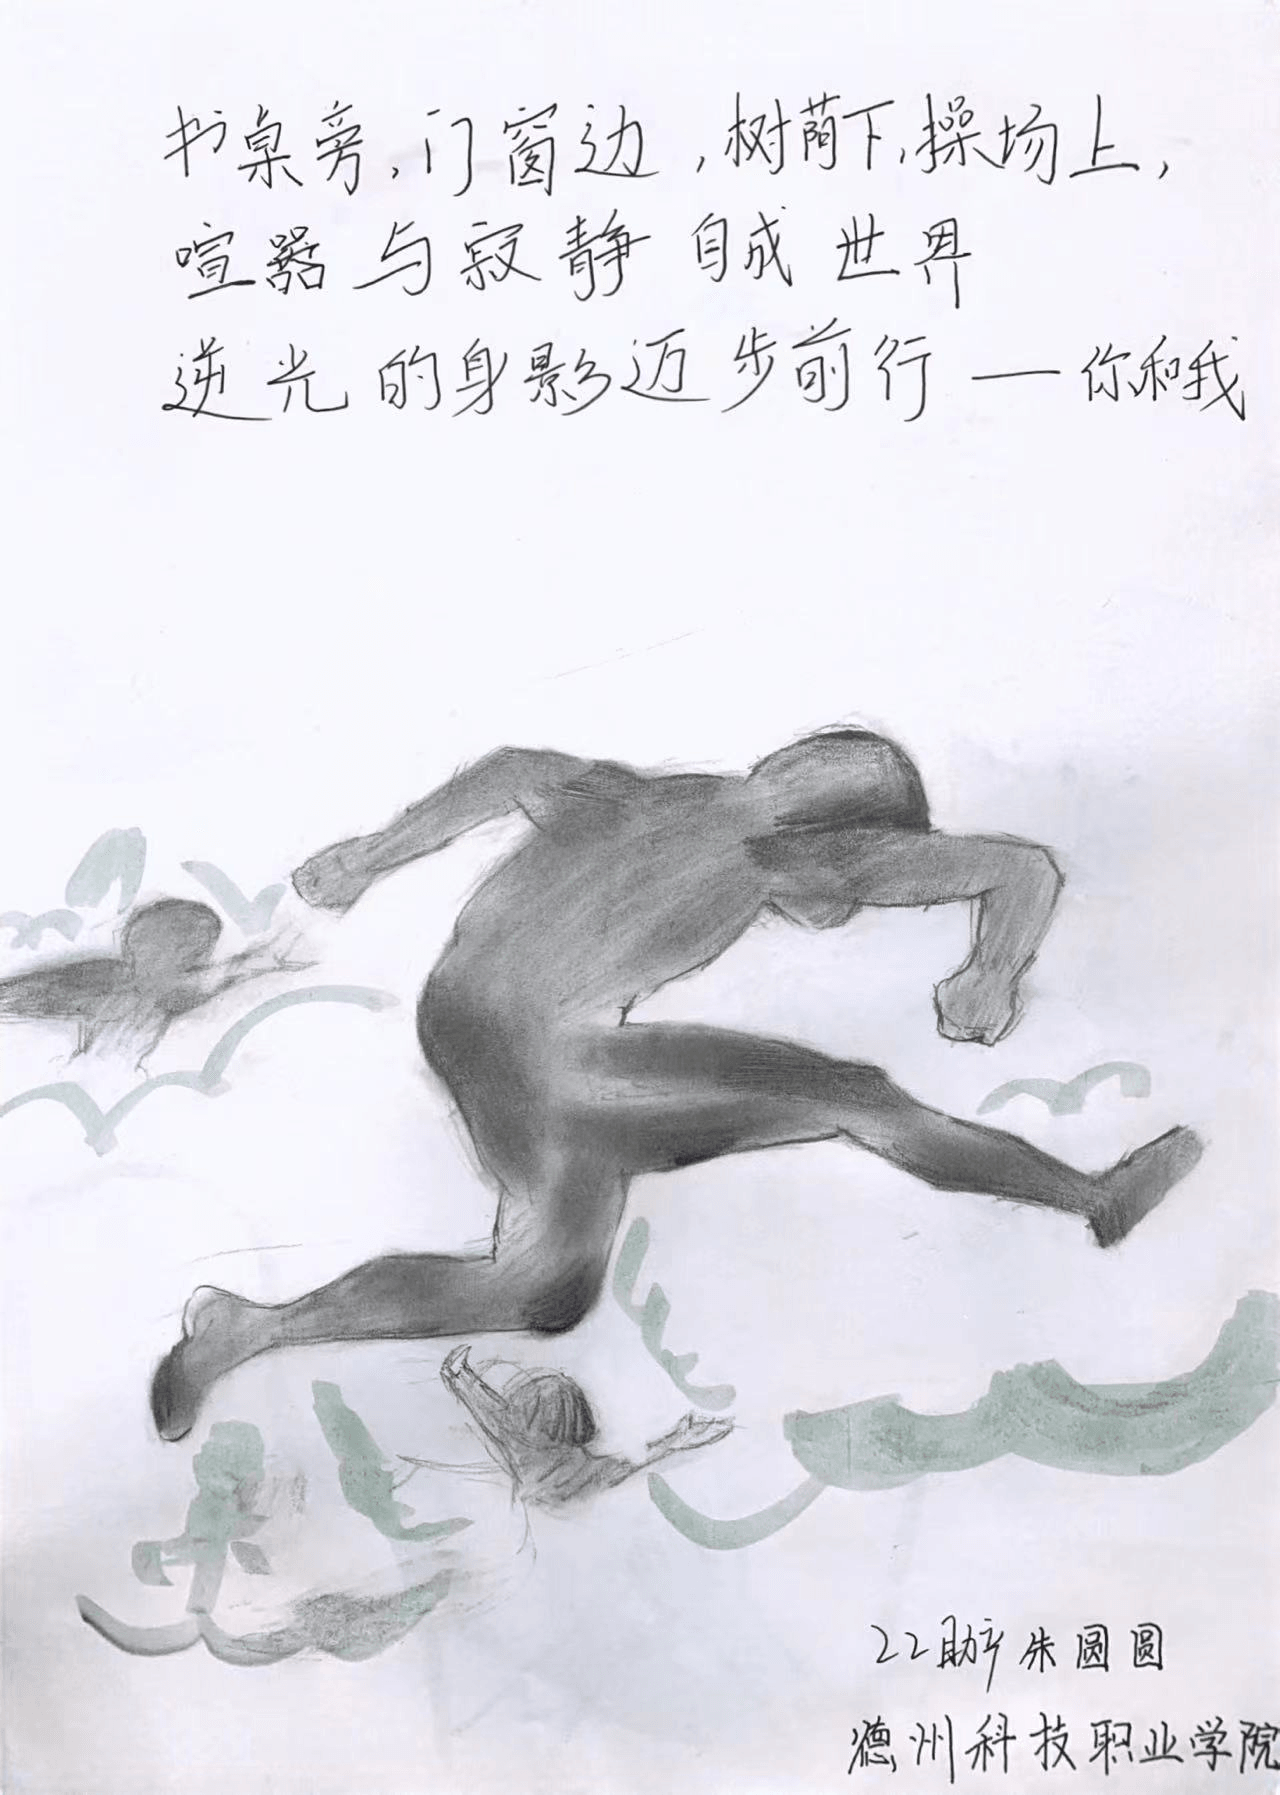 书桌旁,门窗边,树荫下,操场上,
喧嚣与寂静自成世界
逆光的身影迈步前行——你和我
22助产朱圆圆
德州科技职业学院